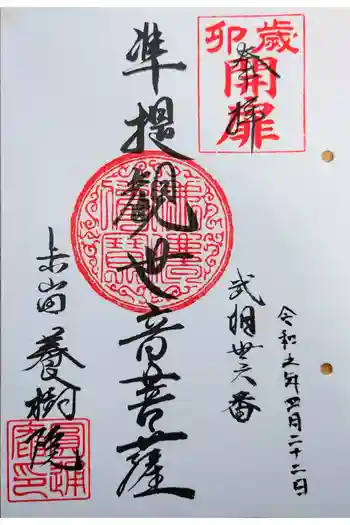 奉拝
卯歳
開扉
令和五年四月二十二日
武相丗六番
準提観世音菩薩
養樹院